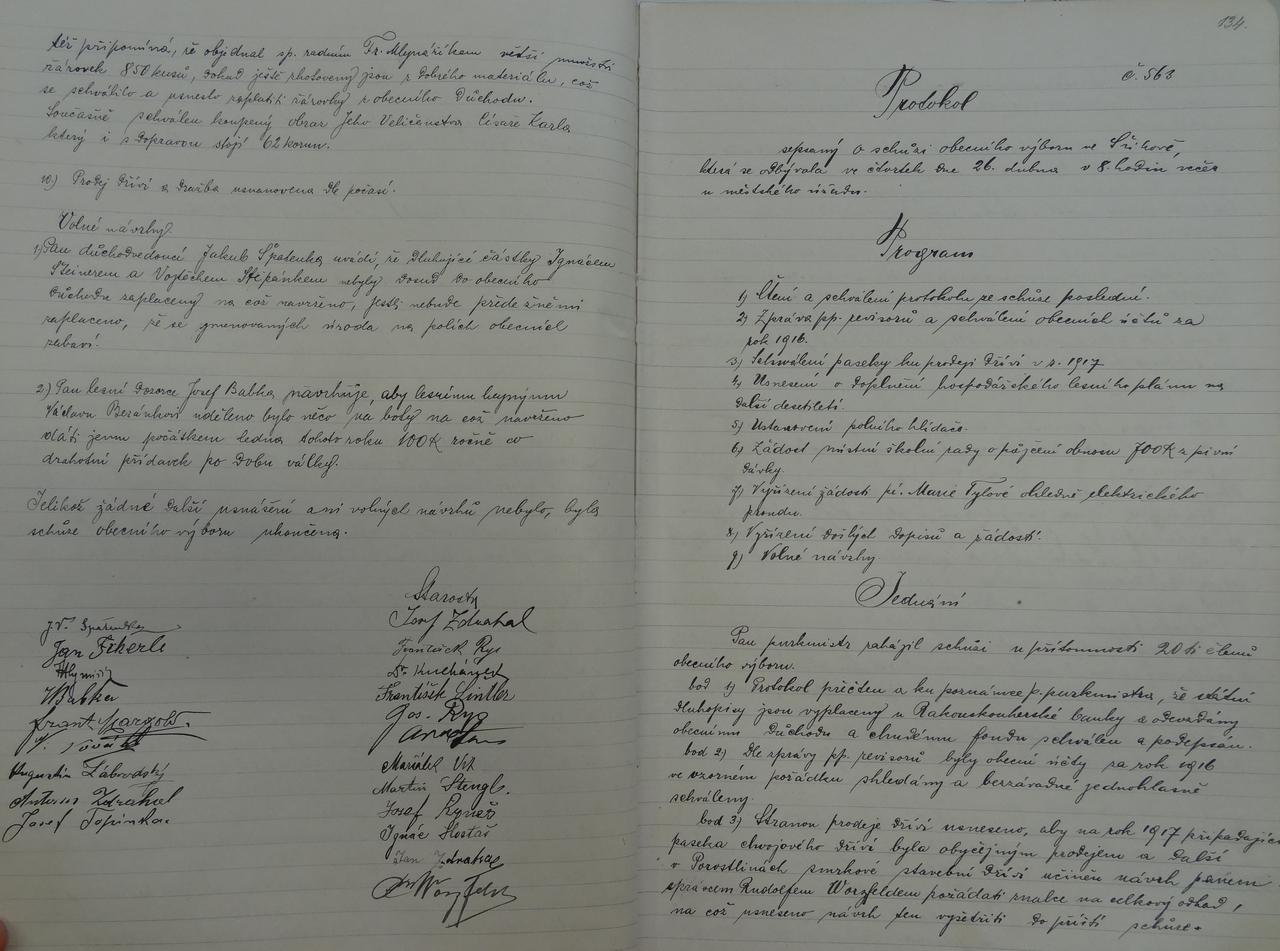 též připomíná, že objednal sp. radním Fr. Mlynáříkem větší množství
žárovek 850 kusů, pokud ještě zhotoveny jsou z dobrého materiálu, což
se schválilo a usneslo zaplatiti žárovky z obecního důchodu.
Současně schválen koupený obraz Jeho Veličenstva Císaře Karla
který i s dopravou stojí 62 korun.
10.) Prodej dříví a dražba ustanovena dle počasí.
Volné návrhy.
1) Pan důchodvedoucí Jakub Špatenka uvádí, že dluhující částky Ignácem
Steinerem a Vojtěchem Štěpánkem nebyly dosud do obecního
důchodu zaplaceny na což navrženo, jestli nebude přede žněmi
zaplaceno, že se jmenovaných úroda na polích obecních
zabaví.
2.) Pan lesní dozorce Josef Babka navrhuje, aby lesnímu hajnýmu
Václavu Beránkovi uděleno bylo něco na boty na což navrženo
dáti jemu počátkem ledna tohoto roku 100 K ročně co
drahotní přídavek po dobu války.
Jelikož žádné další usnášení ani volných návrhů nebylo, byla
schůze obecního výboru ukončena.
Starosta
J. V. Špatenka
Josef Zdrahal
Jan Fikerle
František Rys
Mlynařík
Dr Kuchárzek
WBabka
František Lintler
Frant. Margold.
Jos. Ryg
Mariánek Vit
Augustin Zábrodský
Martin Stengl.
Antonín Zdrahal
Josef Ryneš
Josef Topinka
Ignác Hostaš
Jan Zdrahal
134.
č. 563
Protokol
sepsaný o schůzi obecního výboru ve
která se odbývala ve čtvrtek dne 26. dubna v 8 hodin večer
u městského úřadu.
Program
1) Čtení a schválení protokolu ze schůze poslední.
2) Zpráva pp. revisorů a schválení obecních účtů za
rok 1916.
3) Schválení paseky ku prodeji dříví v r. 1917
4) Usnesení o doplnění hospodářského lesního plánu na
další desetiletí.
5) Ustanovení polního hlídače.
6) Žádost místní školní rady o půjčení obnosu 700 K z pivní
dávky.
7) Vyřízení žádosti pí. Marie Tylové ohledně elektrického
proudu.
8) Vyřízení došlých dopisů a žádostí.
9) Volné návrhy.
Jednání
Pan purkmistr zahájil schůzi u přítomnosti 20ti členů
obecního výboru.
bod 1) Protokol přečten a ku poznámce p. purkmistra, že státní
dluhopisy jsou vyplaceny u Rakouskouherské banky a odevzdány
obecnímu důchodu a chudému fondu schválen a podepsán.
bod 2) Dle zprávy pp. revisorů byly obecní účty za rok 1916
ve vzorném pořádku shledány a bezzávadně jednohlasně
schváleny.
bod 3) Stranou prodeje dříví usneseno, aby na rok 1917 připadající
paseka chvojového dříví byla obyčejným prodejem a další
v Porostlinách smrkové stavební dříví učiněn návrh panem
správcem Rudolfem Worzfeldem požádati znalce na celkový odhad,
na což usneseno návrh ten vyšetřiti do příští schůze.